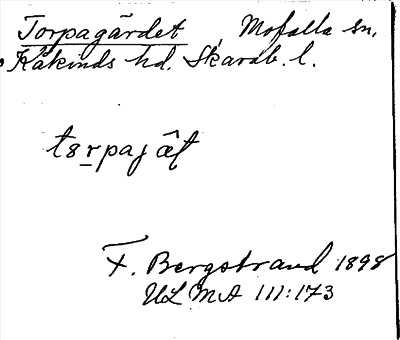 Torpagärdet, Mofalla sn,
Kåkinds hd. Skarab. l.
tȣrpaj ât
F. Bergstrand 1898
ULMA 111:173